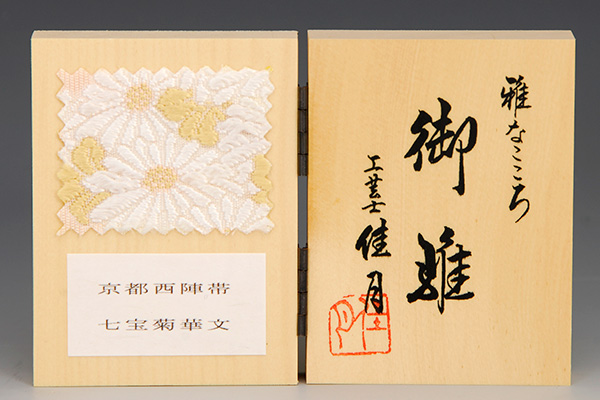 雅なこころ
御雛
工芸士 佳月
京都西陣帯
七宝菊華文